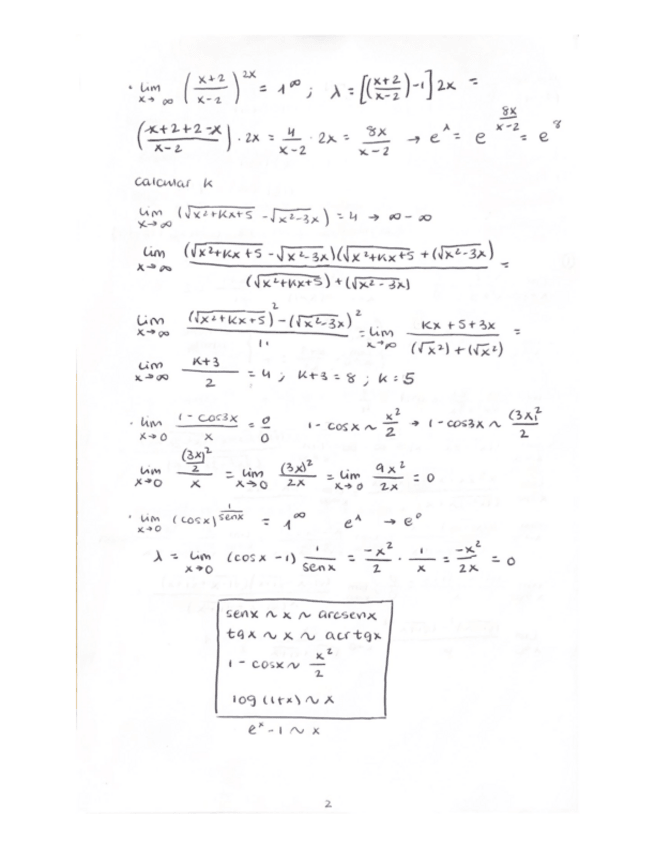 · lim x→∞ ((x+2)/(x-2))^2x = 1^∞ ; λ = [((x+2)/(x-2))-1] 2x =
((x+2+2-x)/(x-2)) · 2x = 4/(x-2) · 2x = 8x/(x-2) → e^λ = e^(8x/(x-2)) = e^8
calcular k
lim x→∞ (√(x²+kx+5) - √(x²-3x)) = 4 → ∞-∞
lim x→∞ ((√(x²+kx+5) - √(x²-3x))(√(x²+kx+5) + (√(x²-3x)))/((√(x²+kx+5))+(√(x²-3x))) =
lim x→∞ ((√(x²+kx+5))² - (√(x²-3x))²)/" = lim x→∞ (kx+5+3x)/((√x²)+(√x²)) =
lim x→∞ (k+3)/2 = 4 ; k+3 = 8 ; k = 5
· lim x→0 (1-cos3x)/x = 0/0 1-cosx ~ x²/2 → 1-cos3x ~ (3x)²/2
lim x→0 ((3x)²/2)/x = lim x→0 (3x)²/2x = lim x→0 9x²/2x = 0
· lim x→0 (cosx)^(1/senx) = 1^∞ e^λ → e^0
λ = lim x→0 (cosx-1) 1/senx = -x²/2 · 1/x = -x²/2x = 0
senx ~ x ~ arcsenx
tgx ~ x ~ acrtgx
1 - cosx ~ x²/2
log(1+x) ~ x
e^x - 1 ~ x
2